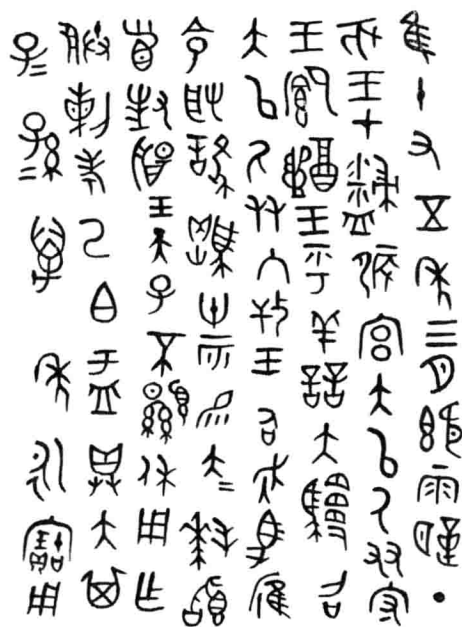 隹十又五年三月既霸丁
亥王才糧侲宮大以厥友守
王鄉醴王乎善夫騩召
大以厥友入攼王召走馬雁
令取誰騆卅二匹易大=拜𩒨
首對揚天子不顯休用乍
朕剌考己白盂鼎大其
子=孫=萬年永寶用